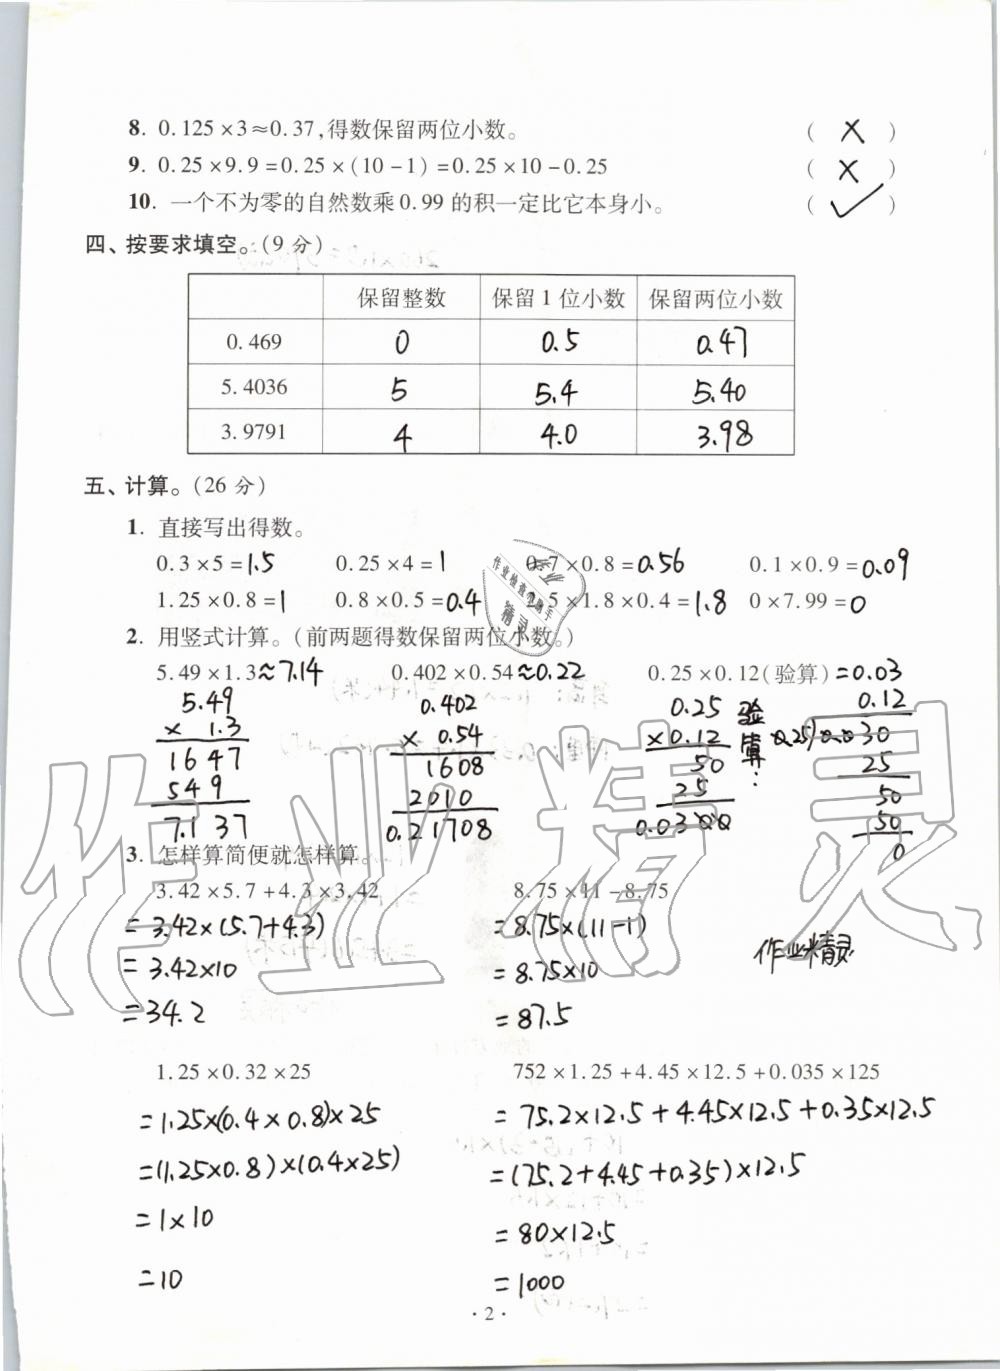 8. 0.125×3≈0.37,得数保留两位小数。 ( X )
9. 0.25×9.9=0.25×(10-1)=0.25×10-0.25 ( X )
10. 一个不为零的自然数乘0.99的积一定比它本身小。 ( ✓ )
四、按要求填空。(9分)
保留整数 保留1位小数 保留两位小数
0.469 0 0.5 0.47
5.4036 5 5.4 5.40
3.9791 4 4.0 3.98
五、计算。(26分)
1. 直接写出得数。
0.3×5=1.5 0.25×4=1 0.7×0.8=0.56 0.1×0.9=0.09
1.25×0.8=1 0.8×0.5=0.4 2.5×1.8×0.4=1.8 0×7.99=0
作业检查小助手
精灵
2. 用竖式计算。(前两题得数保留两位小数。)
5.49×1.3≈7.14 0.402×0.54≈0.22 0.25×0.12(验算)=0.03
5.49 0.402 0.25 验 0.12
× 1.3 × 0.54 ×0.12 算: 0.25)0.030
1647 1608 50 25
549 2010 25 50
7.137 0.21708 0.0300 50
0
3. 怎样算简便就怎样算。
3.42×5.7+4.3×3.42 8.75×11-8.75
=3.42×(5.7+4.3) =8.75×(11-1)
=3.42×10 =8.75×10
=34.2 =87.5
作业精灵
作业精灵
1.25×0.32×25 752×1.25+4.45×12.5+0.035×125
=1.25×(0.4×0.8)×25 =75.2×12.5+4.45×12.5+0.35×12.5
=(1.25×0.8)×(0.4×25) =(75.2+4.45+0.35)×12.5
=1×10 =80×12.5
=10 =1000
·2·